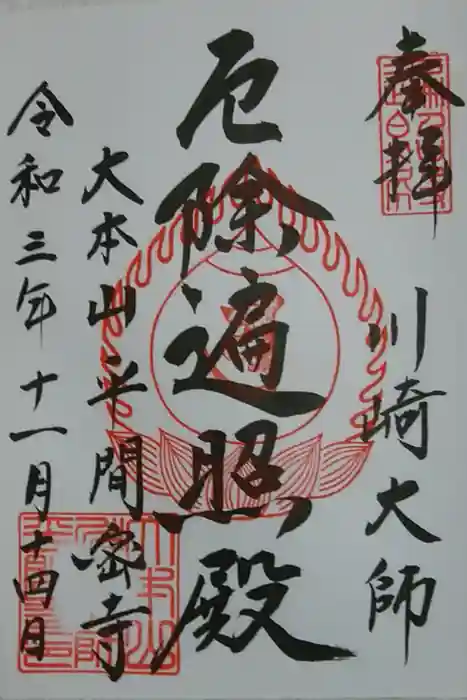 奉拝
川崎大師
厄除遍照殿
大本山平間密寺
令和三年十一月十四日